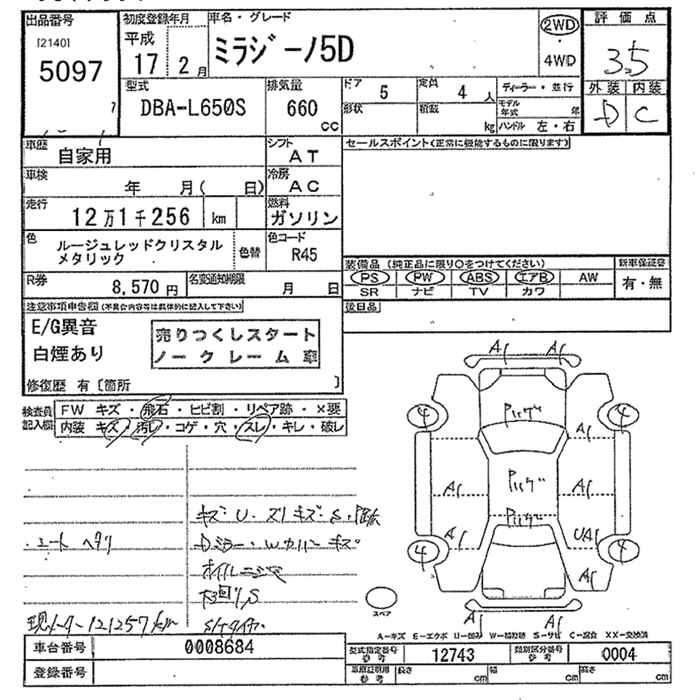 出品番号
[2140]
5097
初度登録年月
平成
17 年 2 月
車名・グレード
ミラジーノ5D
2WD
・
4WD
評価点
3.5
外装 内装
D C
型式
DBA-L650S
排気量
660
cc
ドア 5
定員 4 人
形状
積載 kg
ディーラー・並行
モデル年式 年
ハンドル 左・右
車歴
自家用
シフト
AT
セールスポイント(正常に機能するものに限ります)
車検
年 月( 日)
冷房
AC
走行
12万1千256 km
燃料
ガソリン
色
ルージュレッドクリスタル
メタリック
色替
色コード
R45
R券
8,570 円
名変通知期限
月 日
装備品 (純正品に限り○をつけてください)
PS PW ABS エアB AW
SR ナビ TV カワ
新車保証書
有・無
後日品
注意事項申告欄(不具合内容等は具体的に記入して下さい)
E/G異音
白煙あり
売りつくしスタート
ノークレーム車
修復歴 有〔箇所 〕
検査員
記入欄
FW キズ・飛石・ヒビ割・リペア跡・×要
内装 キズ・汚レ・コゲ・穴・スレ・キレ・破レ
シートヘタリ
キズ・U・スリキズ・S・
Dミラー・Wカバーキズ
オイルニジミ
下回りS
現メーター121257km
A1 A1
4 4
A1
A1 A1
A1 UA1
4 4
A1
A1 A1
スペア
A-キズ E-エクボ U-凹み W-補修跡 S-サビ C-腐食 XX-交換済
車台番号
0008684
登録番号
型式指定番号
参考
12743
類別区分番号
参考
0004
車庫証明用
参考
長さ cm
幅 cm
高さ cm